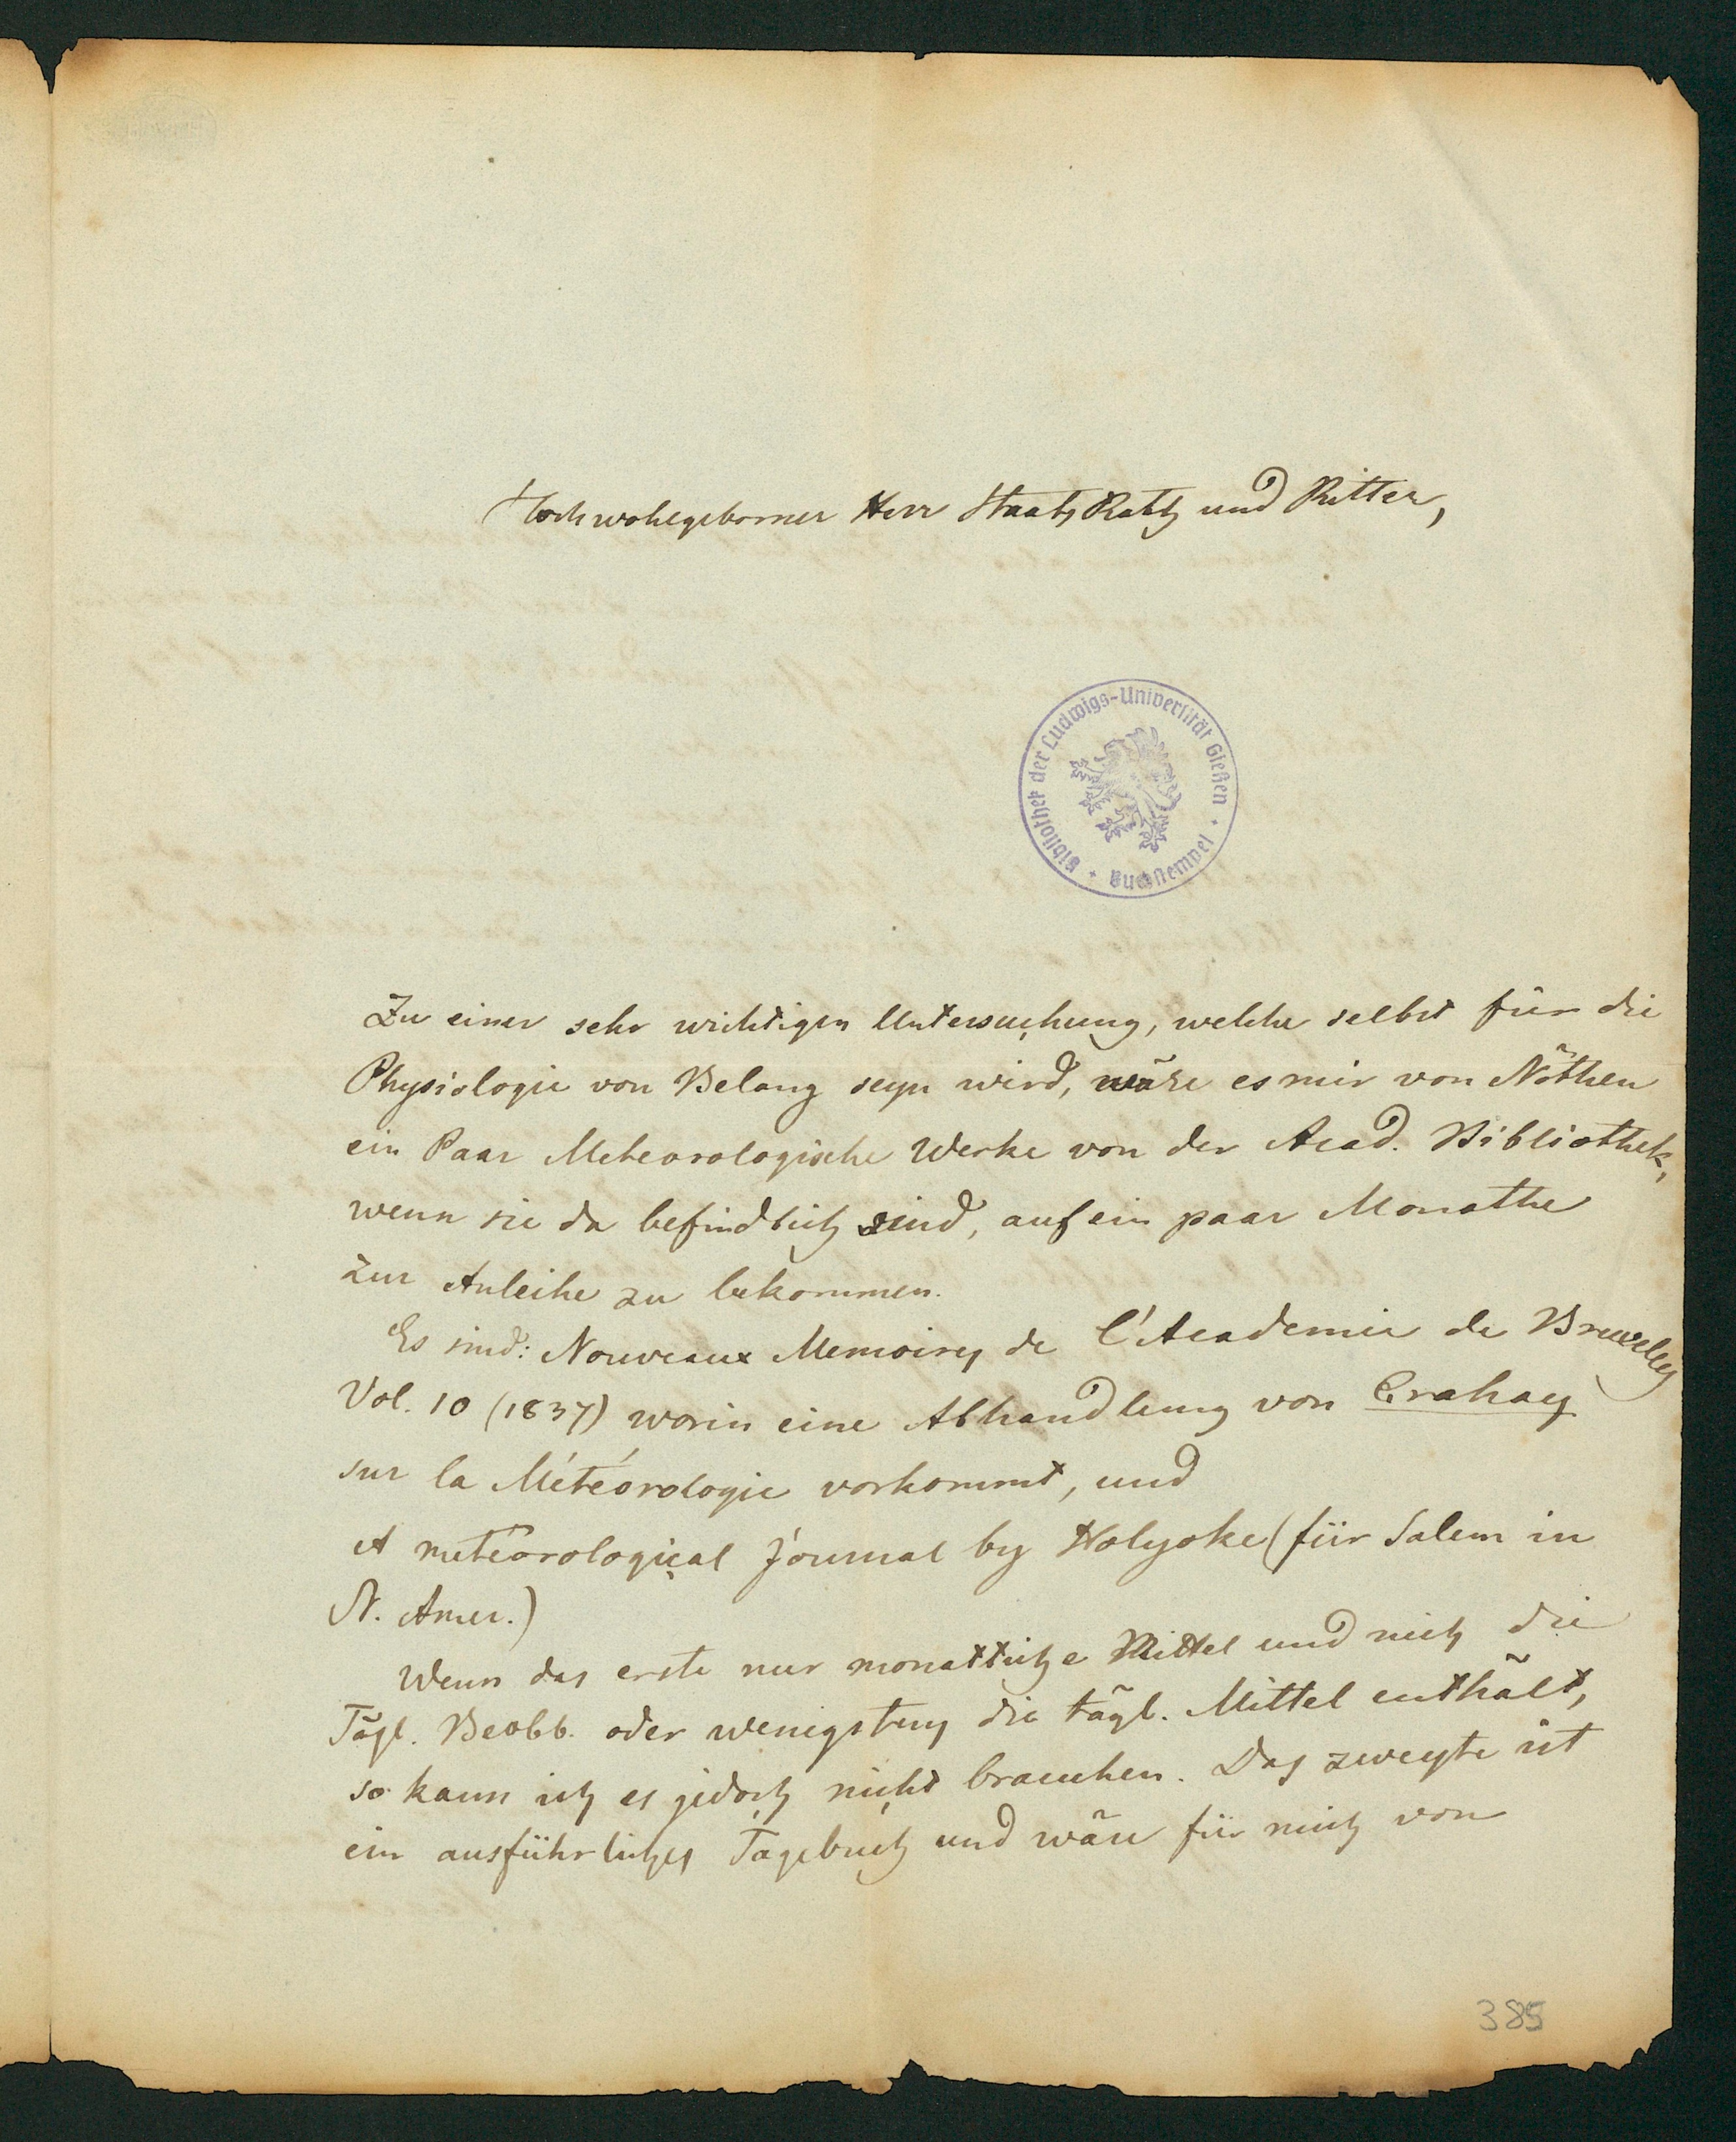 Hochwohlgeborner Herr Staats Rath und Ritter,
Bibliothek der Ludwigs-Universität Gießen · Buchstempel ·
Zu einer sehr wichtigen Untersuchung, welche selbst für die
Physiologie von Belang seyn wird, wäre es mir von Nöthen
ein Paar Meteorologische Werke von der Acad. Bibliothek,
wenn sie da befindlich sind, auf ein paar Monathe
zur Anleihe zu bekommen.
Es sind: Nouveaux Memoires de l'Academie de Bruxelles
Vol. 10 (1837) worin eine Abhandlung von Crahay
sur la Météorologie vorkommt, und
A meteorological Journal by Holyoke (für Salem in
N. Amer.)
Wenn das erste nur monatliche Mittel und nicht die
Tägl. Beobb. oder wenigstens die tägl. Mittel enthält,
so kann ich es jedoch nicht brauchen. Das zweyte ist
ein ausführliches Tagebuch und wäre für mich von
385